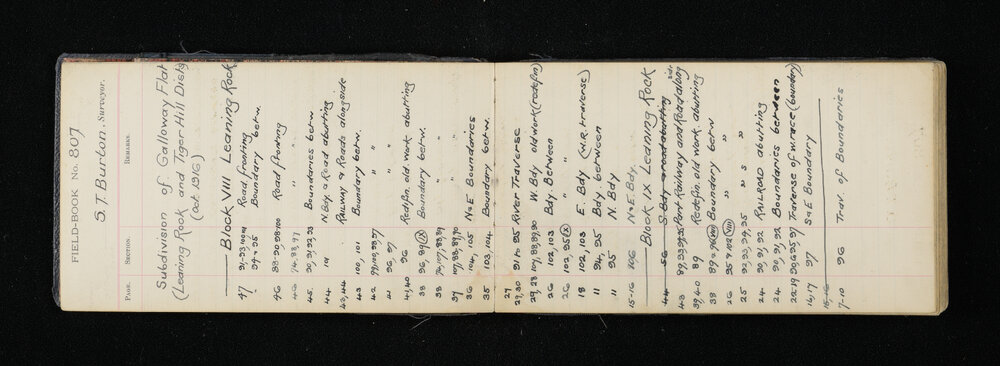 FIELD-BOOK No. 807
S.T. Burton, Surveyor.
PAGE. SECTION. REMARKS.
Subdivision of Galloway Flat
(Leaning Rock and Tiger Hill Dists)
(Oct. 1916)
Block VIII Leaning Rock
47 Road fronting
94 & 95 Boundary betw.
46 88-90, 98-100 Road fronting
46 94, 88, 97 "
45 90, 91, 92, 93 Boundaries betw
44 101 N. Bdy & Road abutting
43,44 Railway & Roads alongside
43 100, 101 Boundary betw.
42 99, 100, 98, 97 " "
41 96, 97 " "
41,40 96 Redefin. old work abutting
38 96, 89 (IX) Boundary betw.
38 " "
37 107, 88, 89, 90 " "
36 104, 105 N & E Boundaries
35 103, 104 Boundary betw.
29
31,30 91 to 95 River Traverse
29,28 107, 88, 89, 90 W. Bdy old work (redefin)
26 102, 103 Bdy. Between
26 102, 95 (X) " "
18 102, 103 E. Bdy (W.R. traverse)
11 94, 95 Bdy. between
11 95 N. Bdy
15-16 106 N & E Bdy.
Block IX Leaning Rock
44 56 S. Bdy & road abutting
43 Part Railway and Road along
39,40 89 Redefin. old work abutting
38 89 & 96 (VIII) Boundary betw
26 95 & 102 (VIII) " "
25 92, 93, 94, 95 " s "
24 90, 91, 92 Railroad abutting
24 90, 91, 92 Boundaries between
22-19 90 & 95, 97 Traverse of W. race (boundary)
16,17 97 S & E Boundary
15,16
7-10 96 Trav of Boundaries